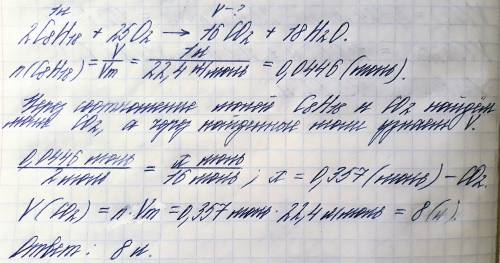 1л V-?
2C8H18 + 25O2 → 16CO2 + 18H2O.
n(C8H18) = V/Vm = 1л/22,4 л/моль = 0,0446 (моль).
Через соотношение молей C8H18 и CO2 найдём
моли CO2, а через найденные моли узнаем V.
0,0446 моль/2 моль = x моль/16 моль; x = 0,357 (моль) – CO2.
V(CO2) = n · Vm = 0,357 моль · 22,4 л/моль = 8 (л).
Ответ: 8 л.